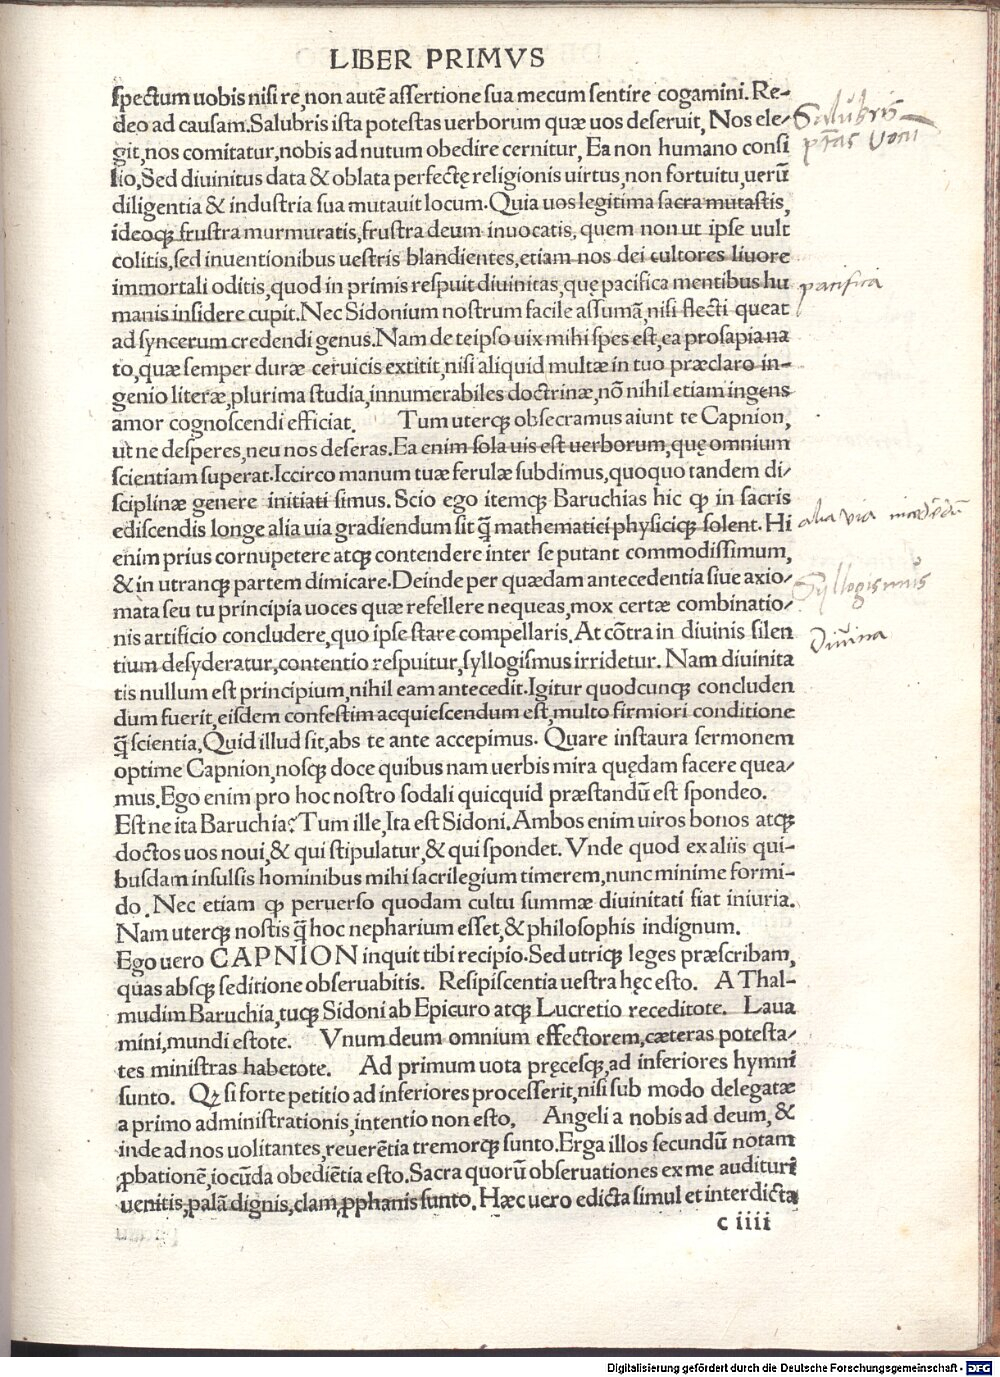 LIBER PRIMVS
spectum uobis nisi re, non autē assertione sua mecum sentire cogamini. Re-
deo ad causam. Salubris ista potestas uerborum quæ uos deseruit, Nos ele/
git, nos comitatur, nobis ad nutum obedire cernitur, Ea non humano consi
lio, Sed diuinitus data & oblata perfectę religionis uirtus, non fortuitu, uerū
diligentia & industria sua mutauit locum. Quia uos legitima sacra mutastis,
ideoq; frustra murmuratis, frustra deum inuocatis, quem non ut ipse uult
colitis, sed inuentionibus uestris blandientes, etiam nos dei cultores liuore
immortali oditis, quod in primis respuit diuinitas, quę pacifica mentibus hu
manis insidere cupit. Nec Sidonium nostrum facile assumā, nisi flecti queat
ad syncerum credendi genus. Nam de teipso uix mihi spes est, ea prosapia na
to, quæ semper duræ ceruicis extitit, nisi aliquid multæ in tuo præclaro in-
genio literæ, plurima studia, innumerabiles doctrinæ, nō nihil etiam ingens
amor cognoscendi efficiat. Tum uterq; obsecramus aiunt te Capnion,
ut ne desperes, neu nos deseras. Ea enim sola uis est uerborum, quę omnium
scientiam superat. Iccirco manum tuæ ferulæ subdimus, quoquo tandem di/
sciplinæ genere initiati simus. Scio ego itemq; Baruchias hic ꝙ in sacris
ediscendis longe alia uia gradiendum sit q̄ mathematici physiciq; solent. Hi
enim prius cornupetere atq; contendere inter se putant commodissimum,
& in utranq; partem dimicare. Deinde per quædam antecedentia siue axio/
mata seu tu principia uoces quæ refellere nequeas, mox certæ combinatio/
nis artificio concludere, quo ipse stare compellaris. At cōtra in diuinis silen
tium desyderatur, contentio respuitur, syllogismus irridetur. Nam diuinita
tis nullum est principium, nihil eam antecedit. Igitur quodcunq; concluden
dum fuerit, eisdem confestim acquiescendum est, multo firmiori conditione
q̄ scientia, Quid illud sit, abs te ante accepimus. Quare instaura sermonem
optime Capnion, nosq; doce quibus nam uerbis mira quędam facere quea/
mus. Ego enim pro hoc nostro sodali quicquid præstandū est spondeo.
Est ne ita Baruchia? Tum ille, Ita est Sidoni. Ambos enim uiros bonos atq;
doctos uos noui, & qui stipulatur, & qui spondet. Vnde quod ex aliis qui-
busdam insulsis hominibus mihi sacrilegium timerem, nunc minime formi-
do. Nec etiam ꝙ peruerso quodam cultu summæ diuinitati fiat iniuria.
Nam uterq; nostis q̄ hoc nepharium esset, & philosophis indignum.
Ego uero CAPNION inquit tibi recipio. Sed utriq; leges præscribam,
quas absq; seditione obseruabitis. Resipiscentia uestra hęc esto. A Thal-
mudim Baruchia, tuq; Sidoni ab Epicuro atq; Lucretio receditote. Laua
mini, mundi estote. Vnum deum omnium effectorem, cæteras potesta/
tes ministras habetote. Ad primum uota pręcesq;, ad inferiores hymni
sunto. Qꝫ si forte petitio ad inferiores processerit, nisi sub modo delegatæ
a primo administrationis, intentio non esto. Angeli a nobis ad deum, &
inde ad nos uolitantes, reuerētia tremorq; sunto. Erga illos secundū notam
ꝓbationē, iocūda obediētia esto. Sacra quorū obseruationes ex me audituri
uenitis, palā dignis, clam, ꝓphanis sunto. Hæc uero edicta simul et interdicta
c iiii
Salubris
pacifica
alia via
Syllogismus
Diuina
Digitalisierung gefördert durch die Deutsche Forschungsgemeinschaft - DFG